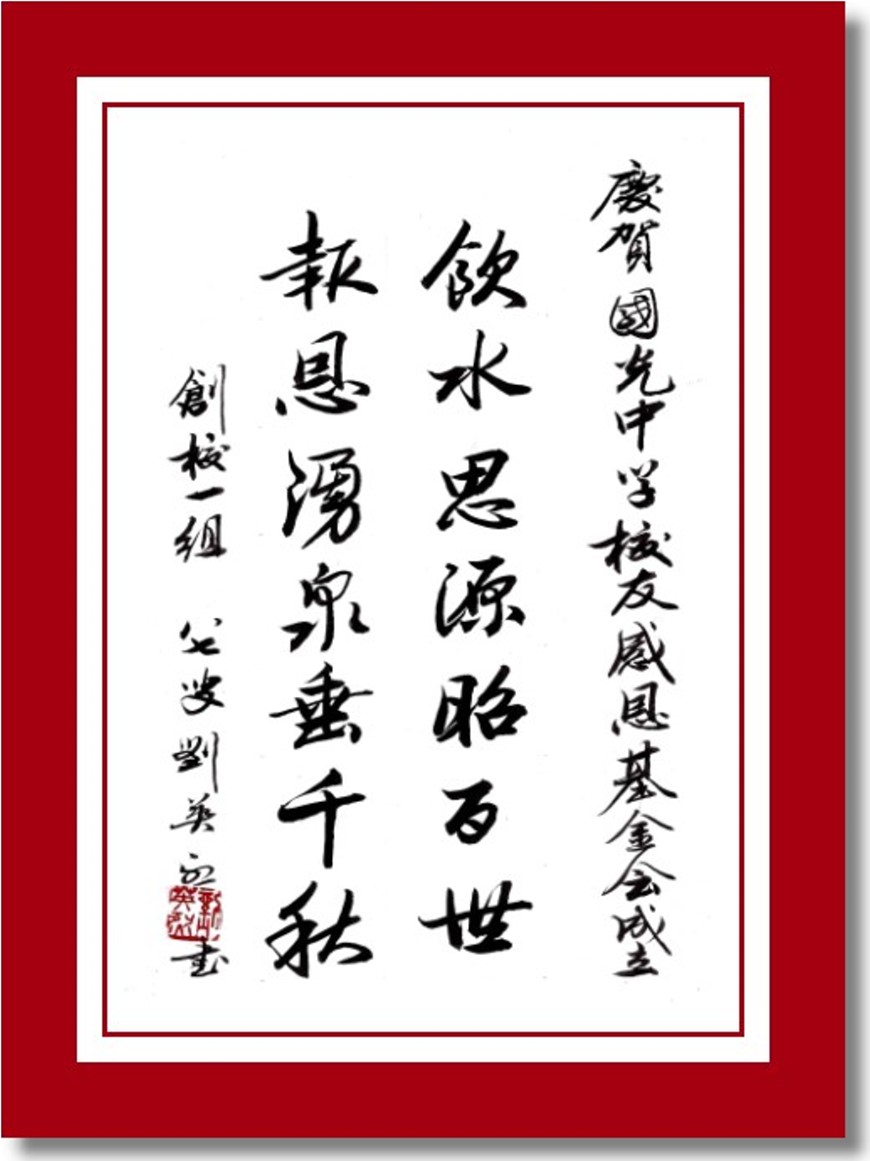 慶賀國光中学校友感恩基金会成立
飲水思源昭百世
報恩湧泉垂千秋
創校一組 八七叟劉英書